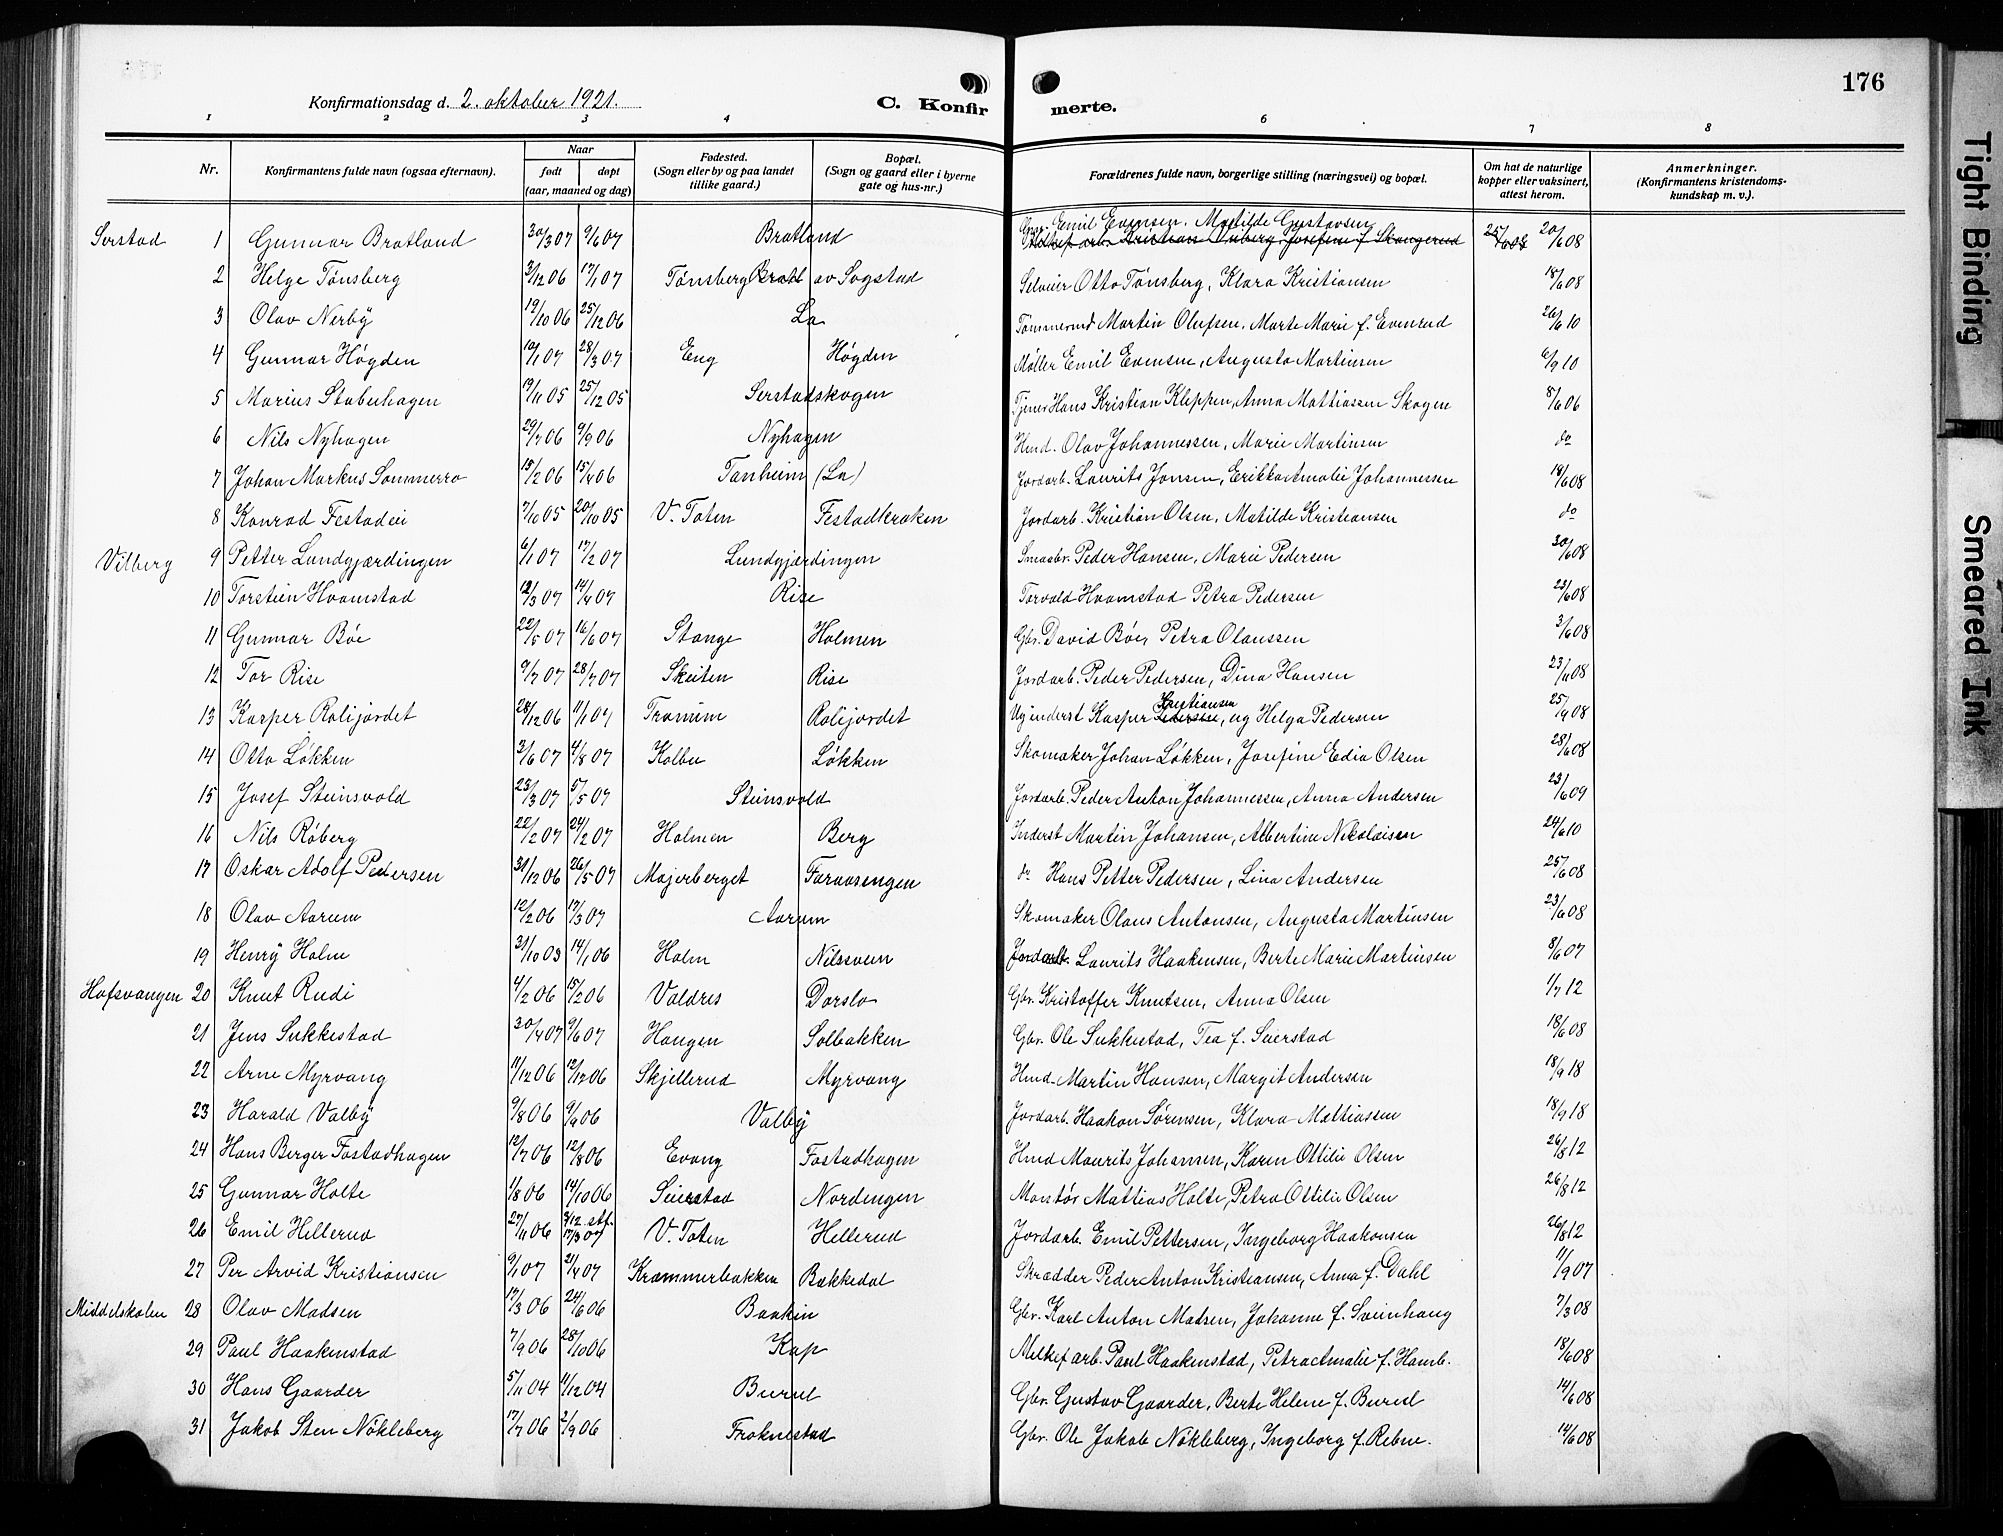 176
Konfirmationsdag d. 2. oktober 1921.
C. Konfirmerte.
1 2 3 4 6 7 8
Nr. Konfirmantens fulde navn (ogsaa efternavn). Naar født døpt (aar, maaned og dag) Fødested. (Sogn eller by og paa landet tillike gaard.) Bopæl. (Sogn og gaard eller i byerne gate og hus-nr.) Forældrenes fulde navn, borgerlige stilling (næringsvei) og bopæl. Om hat de naturlige kopper eller vaksinert, attest herom. Anmerkninger. (Konfirmantens kristendomskundskap m. v.).
Serstad 1 Gunnar Bratland 30/3 07 9/6 07 Bratland Gbr. Emil Evensen. Matilde Gustavsen 20/6 08
2 Helge Tønsberg 3/12 06 17/1 07 Tønsberg av Sogstad Selveier Otto Tønsberg, Klara Kristiansen 18/6 08
3 Olav Nerby 19/10 06 25/12 06 La Tømmermd Martin Olufsen, Marte Marie f. Evenrud 26/6 10
4 Gunnar Høgden 10/1 07 28/3 07 Eng Høgden Møller Emil Evensen, Augusta Martinsen 6/9 10
5 Marius Stubenhagen 19/11 05 25/12 05 Serstadskogen Tjener Hans Kristian Kleppen, Anna Mattiassen Skogen 8/6 06
6 Nils Nyhagen 29/7 06 9/9 06 Nyhagen Hmd. Olav Johannessen, Marie Martinsen do
7 Johan Markus Sommerro 13/2 06 15/4 06 Tanheim (La) Jordarb. Laurits Jonsen, Erikka Amalie Johannessen 18/6 08
8 Konrad Festadeie 7/10 05 20/10 05 V. Toten Festadkroken Jordarb. Kristian Olsen, Matilde Kristiansen do
Vilberg 9 Petter Lundgjærdingen 6/1 07 17/2 07 Lundgjærdingen Smaabr. Peder Hansen, Marie Pedersen 30/6 08
10 Torstein Hvamstad 12/3 07 14/4 07 Rise Torvald Hvamstad Petra Pedersen 23/6 08
11 Gunnar Bøe 22/5 07 16/6 07 Stange Holmen Gbr. David Bøe, Petra Olaussen 3/6 08
12 Tor Rise 9/7 07 28/7 07 Skeiten Rise Jordarb. Peder Pedersen, Dina Hansen 23/6 08
13 Kasper Rolijordet 28/12 06 11/1 07 Tronum Rolijordet Ug inderst Kasper Kristiansen, ug Helga Pedersen 25/9 08
14 Otto Løkken 3/6 07 4/8 07 Kolbu Løkken Skomaker Johan Løkken, Josefine Edia Olsen 28/6 08
15 Josef Steinsvold 23/3 07 5/5 07 Steinsvold Jordarb. Peder Anton Johannessen, Anna Andersen 23/6 09
16 Nils Røberg 22/2 07 24/2 07 Holmen Berg Inderst Martin Johansen, Albertine Nikolaisen 24/6 10
17 Oskar Adolf Pedersen 31/12 06 26/5 07 Majerberget Faraasengen do Hans Petter Pedersen, Lina Andersen 25/6 08
18 Olav Aarum 12/2 06 17/3 07 Aarum Skomaker Olaus Antonsen, Augusta Martinsen 23/6 08
19 Henry Holm 31/10 03 14/1 06 Holm Nilssveen Jordarb. Laurits Haakensen, Berte Marie Martinsen 8/6 07
Hofsvangen 20 Knut Rudi 4/2 06 15/2 06 Valdres Dorslo Gbr. Kristoffer Knutsen, Anna Olsen 1/7 12
21 Jens Sukkestad 30/4 07 9/6 07 Haugen Solbakken Gbr. Ole Sukkestad, Tea f. Seierstad 18/6 08
22 Arne Myrvang 11/12 06 12/12 06 Skjellerud Myrvang Hmd. Martin Hansen, Margit Andersen 18/9 18
23 Harald Valby 9/8 06 9/9 06 Valby Jordarb. Haakon Sørensen, Klara Mattiassen 18/9 18
24 Hans Berger Fostadhagen 12/7 06 12/8 06 Evang Fostadhagen Hmd Maurits Johansen, Karen Ottilie Olsen 26/8 12
25 Gunnar Holte 1/8 06 14/10 06 Seierstad Nordengen Montør Mattias Holte, Petra Ottilie Olsen 26/8 12
26 Emil Hellerud 27/11 06 9/12 stf. 17/3 07 V. Toten Hellerud Jordarb. Emil Pettersen, Ingeborg Haakonsen 26/8 12
27 Per Arvid Kristiansen 9/1 07 21/4 07 Kræmmerbakken Bækkedal Skrædder Peder Anton Kristiansen, Anna f. Dahl 11/9 07
Middelskolen 28 Olav Madsen 17/3 06 24/6 06 Baakin Gbr. Karl Anton Madsen, Johanne f. Sveinhaug 7/3 08
29 Paul Haakenstad 7/9 06 28/10 06 Kap Melkef. arb. Paul Haakenstad, Petra Amalie f. Hamb. 18/6 08
30 Hans Gaarder 5/11 04 11/12 04 Burul Gbr. Gustav Gaarder, Berte Helene f. Burul 14/6 08
31 Jakob Sten Nøkleberg 17/7 06 2/9 06 Froknestad Gbr. Ole Jakob Nøkleberg, Ingeborg f. Rebne. 14/6 08
Tight Binding
Smeared Ink